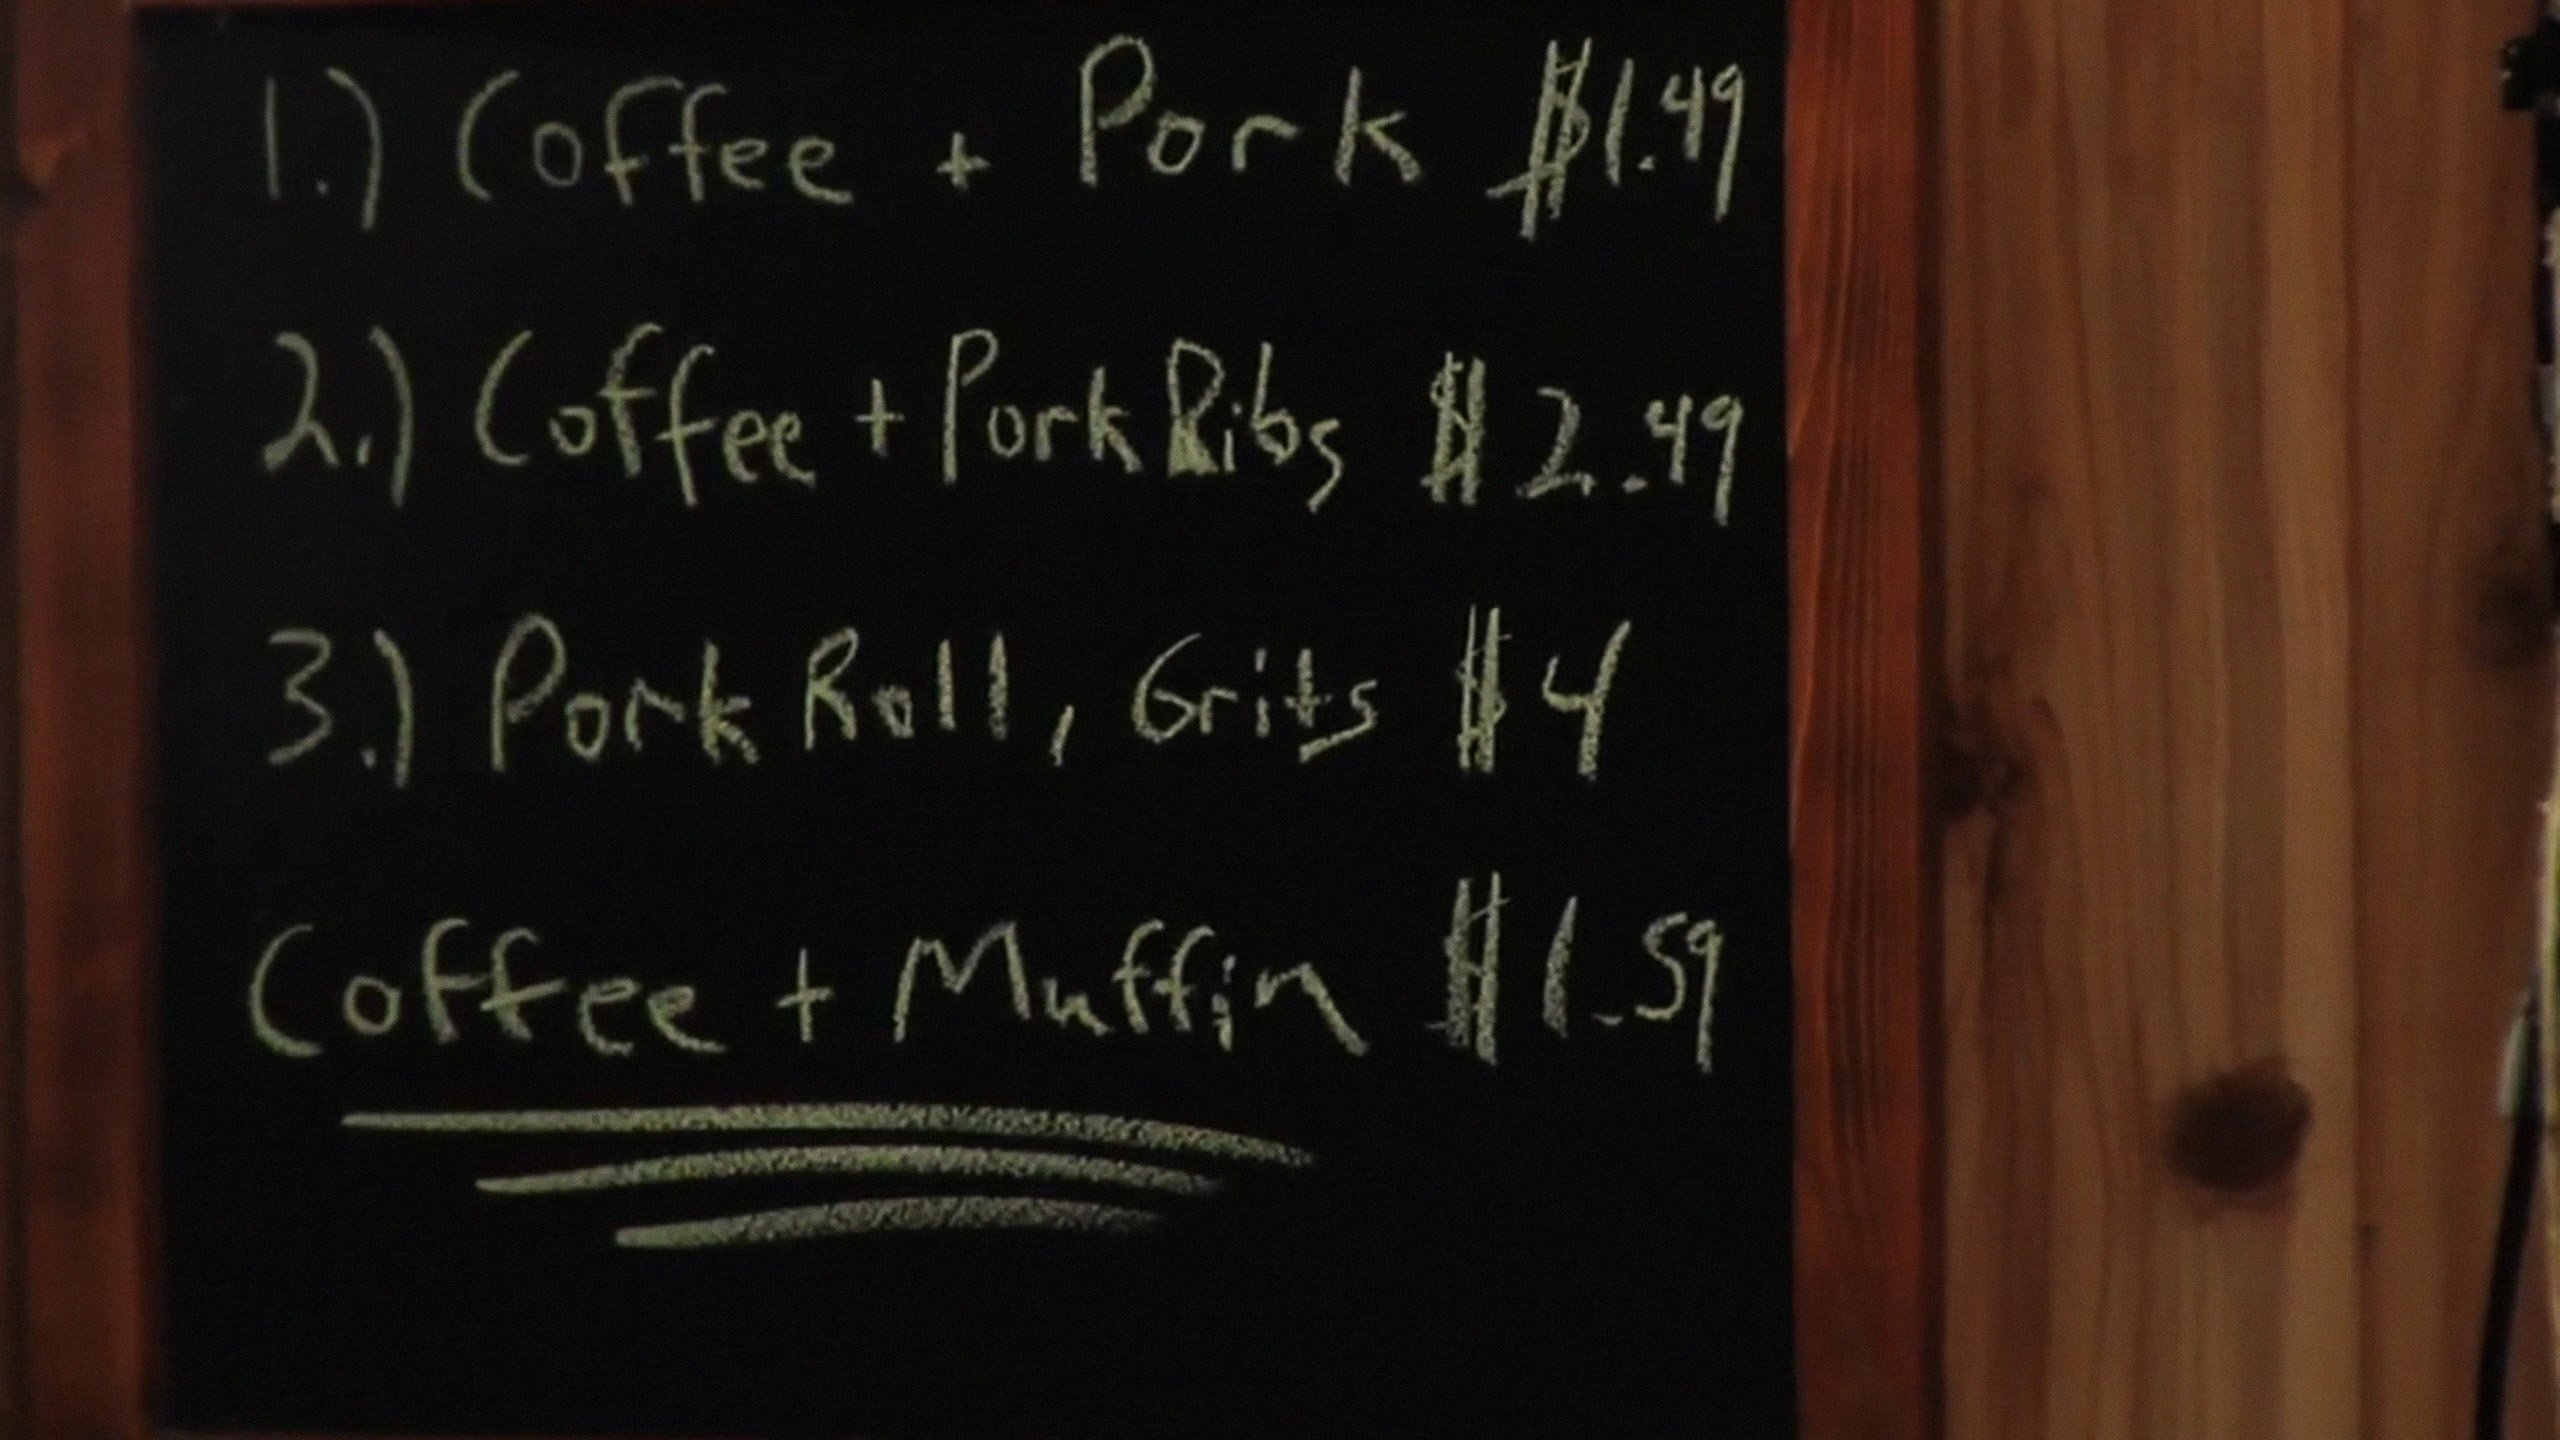 1.) Coffee + Pork $1.49
2.) Coffee + Pork Ribs $2.49
3.) Pork Roll, Grits $4
Coffee + Muffin $1.59